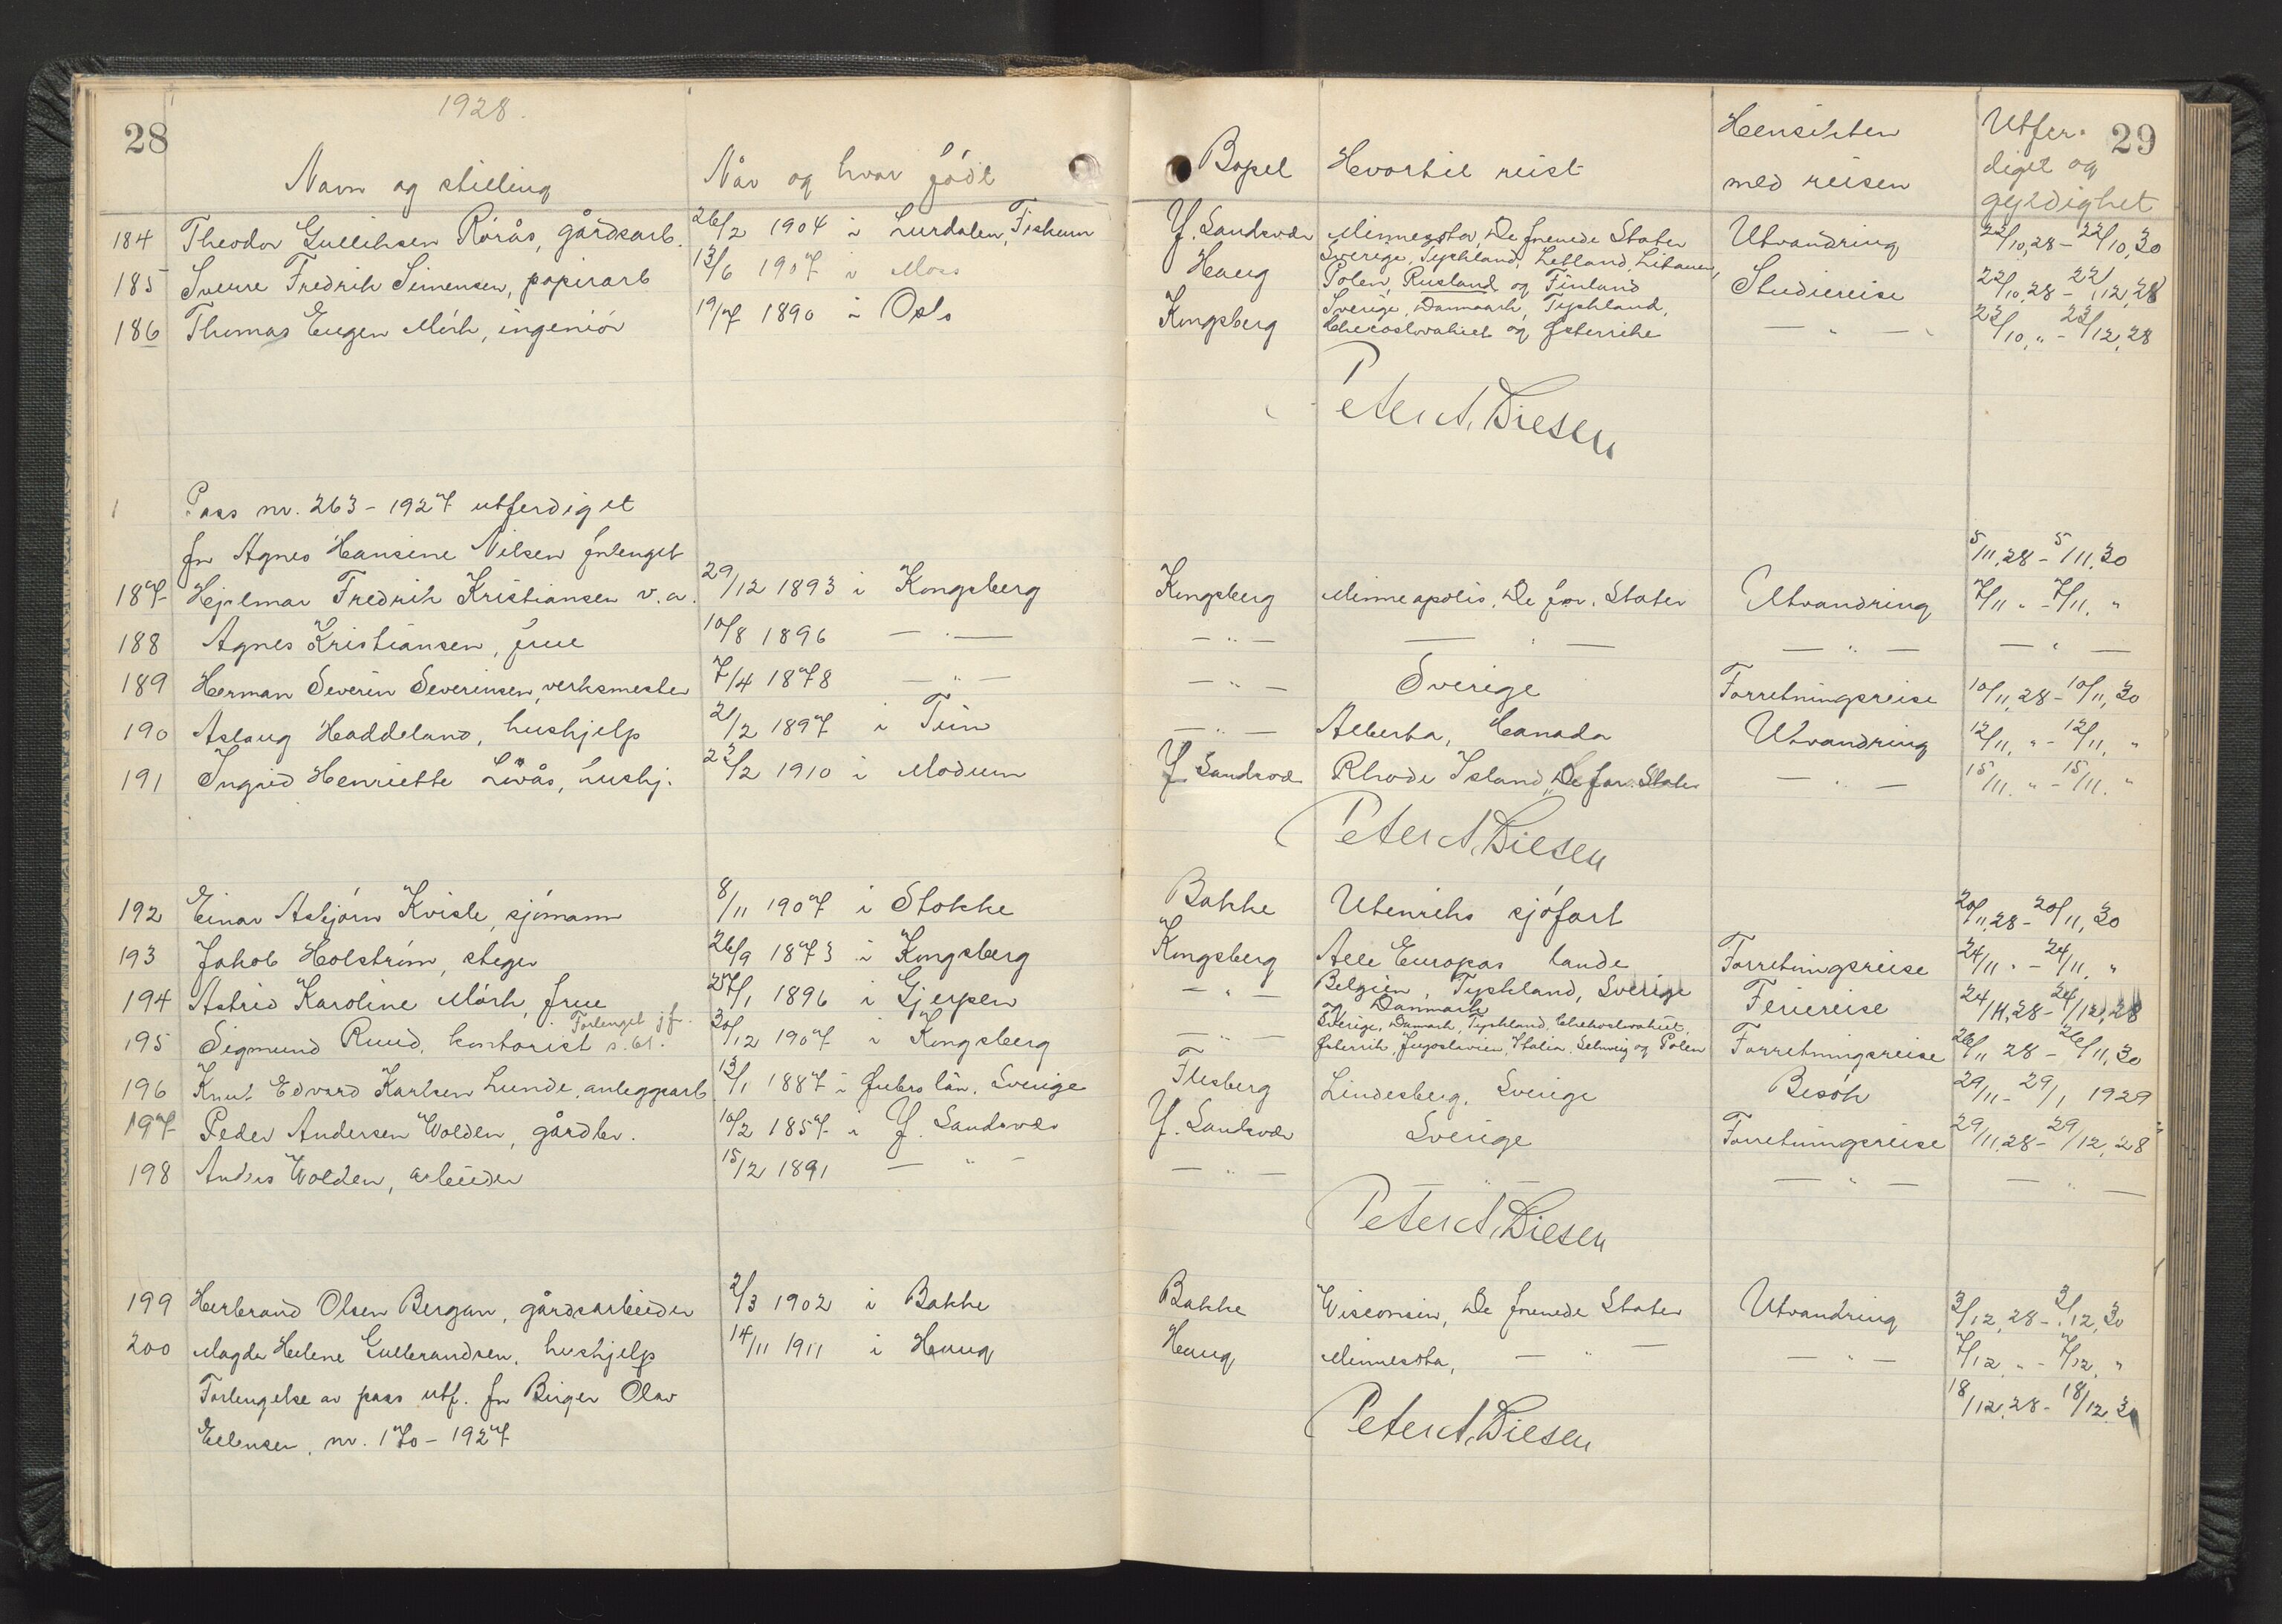 28
1928.
29
Navn og stilling | Når og hvor född | Bopel | Hvortil reist | Hensikten med reisen | Utferdiget og gyldighet
184 Theodor Gullihsen Rörås, gårdsarb. | 26/2 1904 i Lurdalen, Fiskum | Y. Sandsvær | Minnesota, De forenede Stater | Utvandring | 22/10,28 - 22/10,30
185 Sverre Fredrik Simensen, papirarb | 13/6 1907 i Moss | Haug | Sverige, Tyskland, Letland, Litauen, Polen, Rusland og Finland | Studiereise | 22/10,28 - 22/12,28
186 Thomas Eugen Mörk, ingeniör | 19/7 1890 i Oslo | Kongsberg | Sverige, Danmark, Tyskland, Chekoslovakiet og Østerrike | — " — | 23/10, " - 23/12,28
Peter A. Diesen
Pass nr. 263 - 1927 utferdiget
for Agnes Hansine Nilsen forlenget | 5/11,28 - 5/11,30
187 Hjalmar Fredrik Kristiansen v.a. | 29/12 1893 i Kongsberg | Kongsberg | Minneapolis, De for. Stater | Utvandring | 7/11 " - 7/11, "
188 Agnes Kristiansen, frue | 10/8 1896 — " — | — " — | — " — | — " — | — " —
189 Herman Severin Severinsen, verksmester | 7/4 1878 — " — | — " — | Sverige | Forretningsreise | 10/11,28 - 10/11,30
190 Aslaug Haddeland, hushjelp | 21/2 1897 i Tinn | — " — | Alberta, Kanada | Utvandring | 12/11, " - 12/11, "
191 Ingrid Henriette Lövås, hushj. | 22/2 1910 i Modum | Y. Sandsvær | Rhode Island, De for. Stater | — " — | 15/11. " - 15/11. "
Peter A. Diesen
192 Einar Asbjörn Kvisle, sjömann | 8/11 1907 i Stokke | Bakke | Utenriks sjöfart | 20/11,28 - 20/11,30
193 Jakob Holström, steger | 26/9 1873 i Kongsberg | Kongsberg | Alle Europas lande | Forretningsreise | 24/11 " - 24/11, "
194 Astrid Karoline Mörk, frue | 27/1 1896 i Gjerpen | — " — | Belgien, Tyskland, Sverige og Danmark | Feriereise | 24/11,28 - 24/12,28
195 Sigmund Ruud, kontorist Forlenget jfr. s. 61. | 30/12 1907 i Kongsberg | — " — | Sverige, Danmark, Tyskland, Chekoslovakiet, Østerrik, Jugoslavien, Italia, Schweiz og Polen | Forretningsreise | 26/11 28 - 26/11,30
196 Knut Edvard Karlsen Lunde, anleggsarb | 13/1 1887 i län, Sverige | Flesberg | Lindesberg, Sverige | Besök | 29/11 - 29/1 1929
197 Peder Andersen Wolden, gårdbr. | 10/2 1857 i Y. Sandsvær | Y. Sandsvær | Sverige | Forretningsreise | 29/11,28 - 29/12,28
198 Anders Wolden, arbeider | 15/2 1891 — " — | — " — | — " — | — " — | — " —
Peter A. Diesen
199 Herbrand Olsen Bergan, gårdsarbeider | 2/3 1902 i Bakke | Bakke | Wisconsin, De forenede Stater | Utvandring | 3/12,28 - 3/12,30
200 Magda Helene Gulbrandsen, hushjelp | 14/11 1911 i Haug | Haug | Minnesota, — " — | — " — | 7/12, " - 7/12, "
Forlengelse av pass utf. for Birger Olav | 18/12,28 - 18/12,30
Ellensen, nr. 170 - 1927
Peter A. Diesen